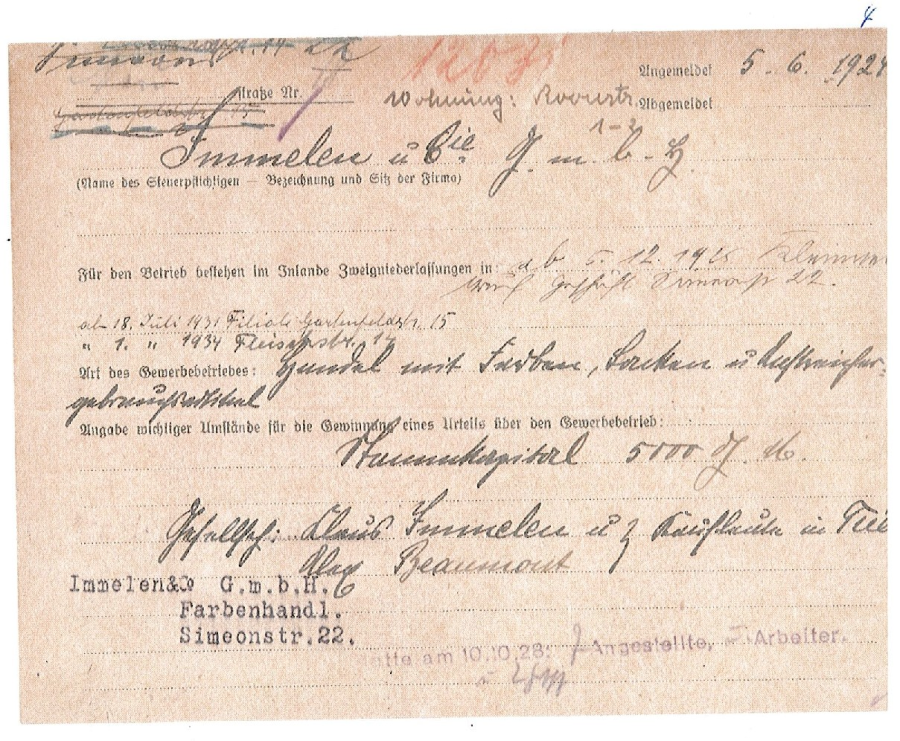 4
Simeonstr. 22
1267
Angemeldet 5. 6. 1924
straße Nr.
Wohnung: Roonstr. Abgemeldet
Gartenfeldstr. 15
1-3
Immelen u Cie. G. m. b. H.
(Name des Steuerpflichtigen — Bezeichnung und Sitz der Firma)
Für den Betrieb bestehen im Inlande Zweigniederlassungen in: ab 12. 19
Geschäft Simeonstr 22.
ab 18. Juli 1931 Filiale Gartenfeldstr. 15
" 1. " 1934 Fleischstr.
Art des Gewerbebetriebes: Handel mit Farben, Lacken u Anstreicher-
gebrauchsartikel
Angabe wichtiger Umstände für die Gewinnung eines Urteils über den Gewerbebetrieb:
Stammkapital 5000 G. M.
Gesellsch: Klaus Immelen u Kaufleute in Trie
Alex Beaumont
Immelen&Co G.m.b.H.
Farbenhandl.
Simeonstr.22.
atte am 10.10.28: Angestellte, Arbeiter.